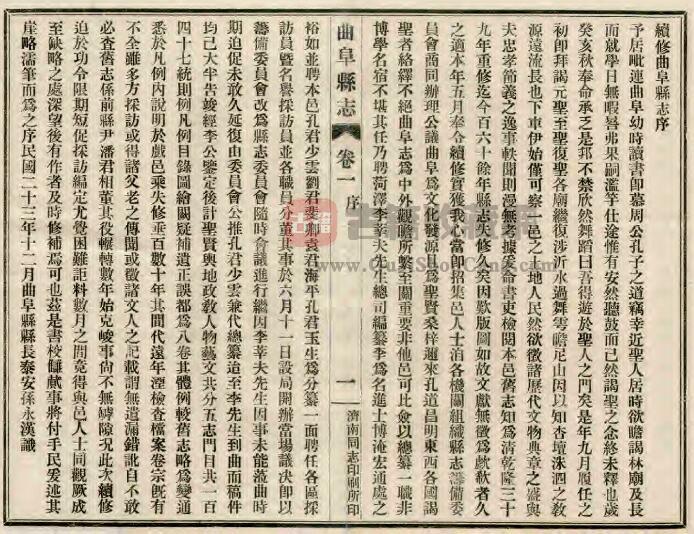 續修曲阜縣志序
予居毗連曲阜幼時讀書即慕周公孔子之道竊幸近聖人居時欲瞻謁林廟及長
而就學日無暇晷弗果嗣濫竽仕途惟有安然聽鼓而已然謁聖之念終未釋也歲
癸亥秋奉命承乏是邦不禁欣然舞蹈曰吾得遊於聖人之門矣是年九月履任之
初即拜謁元聖至聖復聖各廟繼復涉沂水過舞雩瞻尼山因以知杏壇洙泗之教
源遠流長也下車伊始僅可察一邑之土地人民然欲徵諸歷代文物典章之盛與
夫忠孝節義之逸事軼聞則漫無考據爰命書吏檢閱本邑舊志知爲清乾隆三十
九年重修迄今百六十餘年縣志失修久矣因歎版圖如故文獻無徵爲欷歔者久
之適本年五月奉令續修實獲我心當即招集邑人士洎各機關組織縣志籌備委
員會商同辦理公議曲阜爲文化發源之區爲聖賢桑梓邇來孔道昌明東西各國謁
聖者絡繹不絕曲阜志爲中外觀瞻所繫至關重要非他邑可比僉以總纂一職非
博學名宿不堪其任乃聘菏澤李莘夫先生總司編纂李爲名進士博淹宏通處之
曲阜縣志 卷一 序 一 濟南同志印刷所印
裕如並聘本邑孔君少雲劉君斐卿袁君海平孔君玉生爲分纂一面聘任各區採
訪員暨名譽採訪員並各職員分董其事於六月十一日設局開辦當場議决即以
籌備委員會改爲縣志委員會隨時會議進行繼因李莘夫先生因事未能蒞曲時
期迫促未敢久延復由委員會公推孔君少雲兼代總纂迨至李先生到曲而稿件
均已大半告竣經李公鑒定後計聖賢輿地政教人物藝文共分五志門目共一百
四十七統則例凡例目錄圖繪闕疑補遺正誤都爲八卷其體例較舊志略爲變通
悉於凡例內說明於戲邑乘失修垂百數十年其間代遠年湮檢查檔案卷宗旣有
不全雖多方採訪或得諸父老之傳聞或徵諸文人之記載謂無遺漏錯訛自不敢
必查舊志係前縣尹潘君相董其役輾轉數年始克竣事尙不無罅隙况此次續修
迫於功令限期短促採訪編定尤覺困難詎料數月之間竟得與邑人士同觀厥成
至缺略之處深望後有作者及時修補焉可也茲是書校讎蕆事將付手民爰述其
崖略濡筆而爲之序民國二十三年十二月曲阜縣縣長泰安孫永漢識